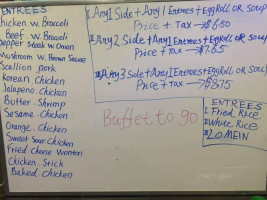 ENTREES
Chicken w. Broccoli
Beef w. Broccoli
Pepper Steak w. Onion
Mushroom w. Brown Sauce
Scallion Pork
Korean Chicken
Jalapeno Chicken
Butter Shrimp
Sesame Chicken
Orange Chicken
Sweet Sour Chicken
Fried Cheese Wonton
Chicken Stick
Baked Chicken
Any 1 Side + Any 1 Entrees + Egg Roll OR Soup
Price + Tax → $6.50
Any 2 Side + Any 1 Entrees + Egg Roll OR Soup
Price + Tax → $7.65
Any 3 Side + Any 1 Entrees + Egg Roll OR Soup
Price + Tax → $8.75
Buffet to go
ENTREES
Fried Rice
White Rice
LO MEIN